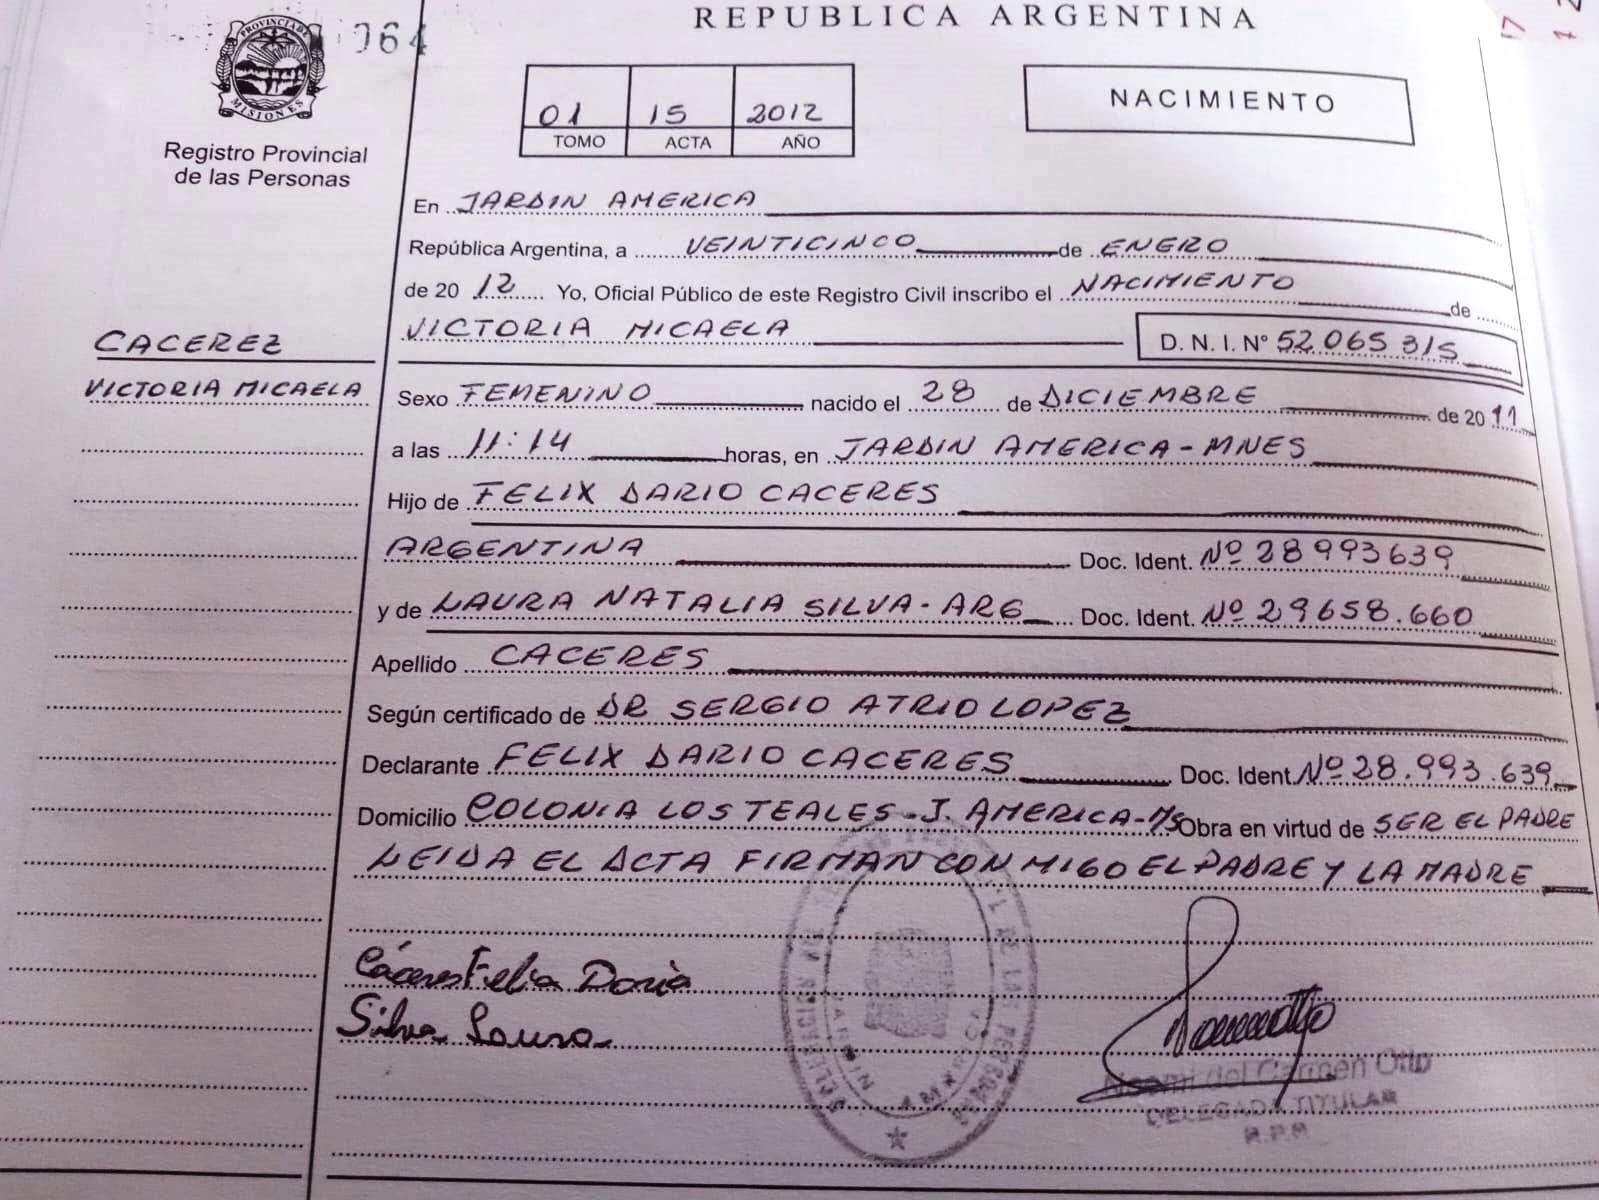 REPUBLICA ARGENTINA
064
PROVINCIA DE MISIONES
Registro Provincial
de las Personas
01 15 2012
TOMO ACTA AÑO
NACIMIENTO
En JARDIN AMERICA
República Argentina, a VEINTICINCO de ENERO
de 20 12 Yo, Oficial Público de este Registro Civil inscribo el NACIMIENTO de
VICTORIA MICAELA D. N. I. Nº 52.065 315
CACEREZ
VICTORIA MICAELA
Sexo FEMENINO nacido el 28 de DICIEMBRE de 20 11
a las 11:14 horas, en JARDIN AMERICA - MNES
Hijo de FELIX DARIO CACERES
ARGENTINA Doc. Ident. Nº 28993639
y de LAURA NATALIA SILVA - ARG Doc. Ident. Nº 29658.660
Apellido CACERES
Según certificado de DR SERGIO ATRIO LOPEZ
Declarante FELIX DARIO CACERES Doc. Ident. Nº 28.993.639
Domicilio COLONIA LOS TEALES - J. AMERICA - MS Obra en virtud de SER EL PADRE
LEIDA EL ACTA FIRMAN CON MIGO EL PADRE Y LA MADRE
Silva Laura
del Carmen Otto
DELEGADA TITULAR
R.P.P.